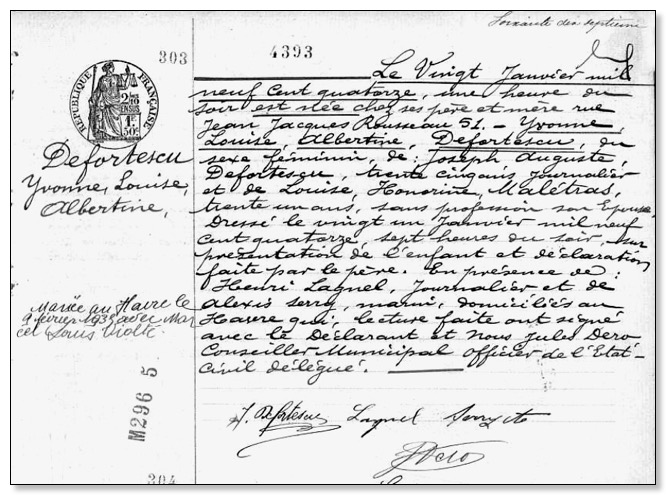 Soixante dix septième
303
4393
RÉPUBLIQUE FRANÇAISE
Le Vingt Janvier mil
neuf cent quatorze, une heure du
soir est née chez ses père et mère rue
Jean Jacques Rousseau 51. – Yvonne,
Louise, Albertine, Defortescu, du
sexe féminin, de : Joseph Auguste,
Defortescu, trente cinq ans, journalier
et de Louise, Honorine, Malétras,
trente un ans, sans profession son Epouse
Dressé le vingt un Janvier mil neuf
cent quatorze, sept heures du soir, sur
présentation de l'enfant et déclaration
faite par le père. En présence de :
Henri Lagnel, journalier et de
Alexis Serry, marin, domiciliés au
Havre qui, lecture faite ont signé
avec le Déclarant et Nous Jules Dero
Conseiller Municipal officier de l'Etat-
Civil délégué.
Defortescu
Yvonne, Louise,
Albertine,
Mariée au Havre le
9 février 1935 avec Mar
cel Louis Violte
M296 5
J. Defortescu Lagnel
JDero
304